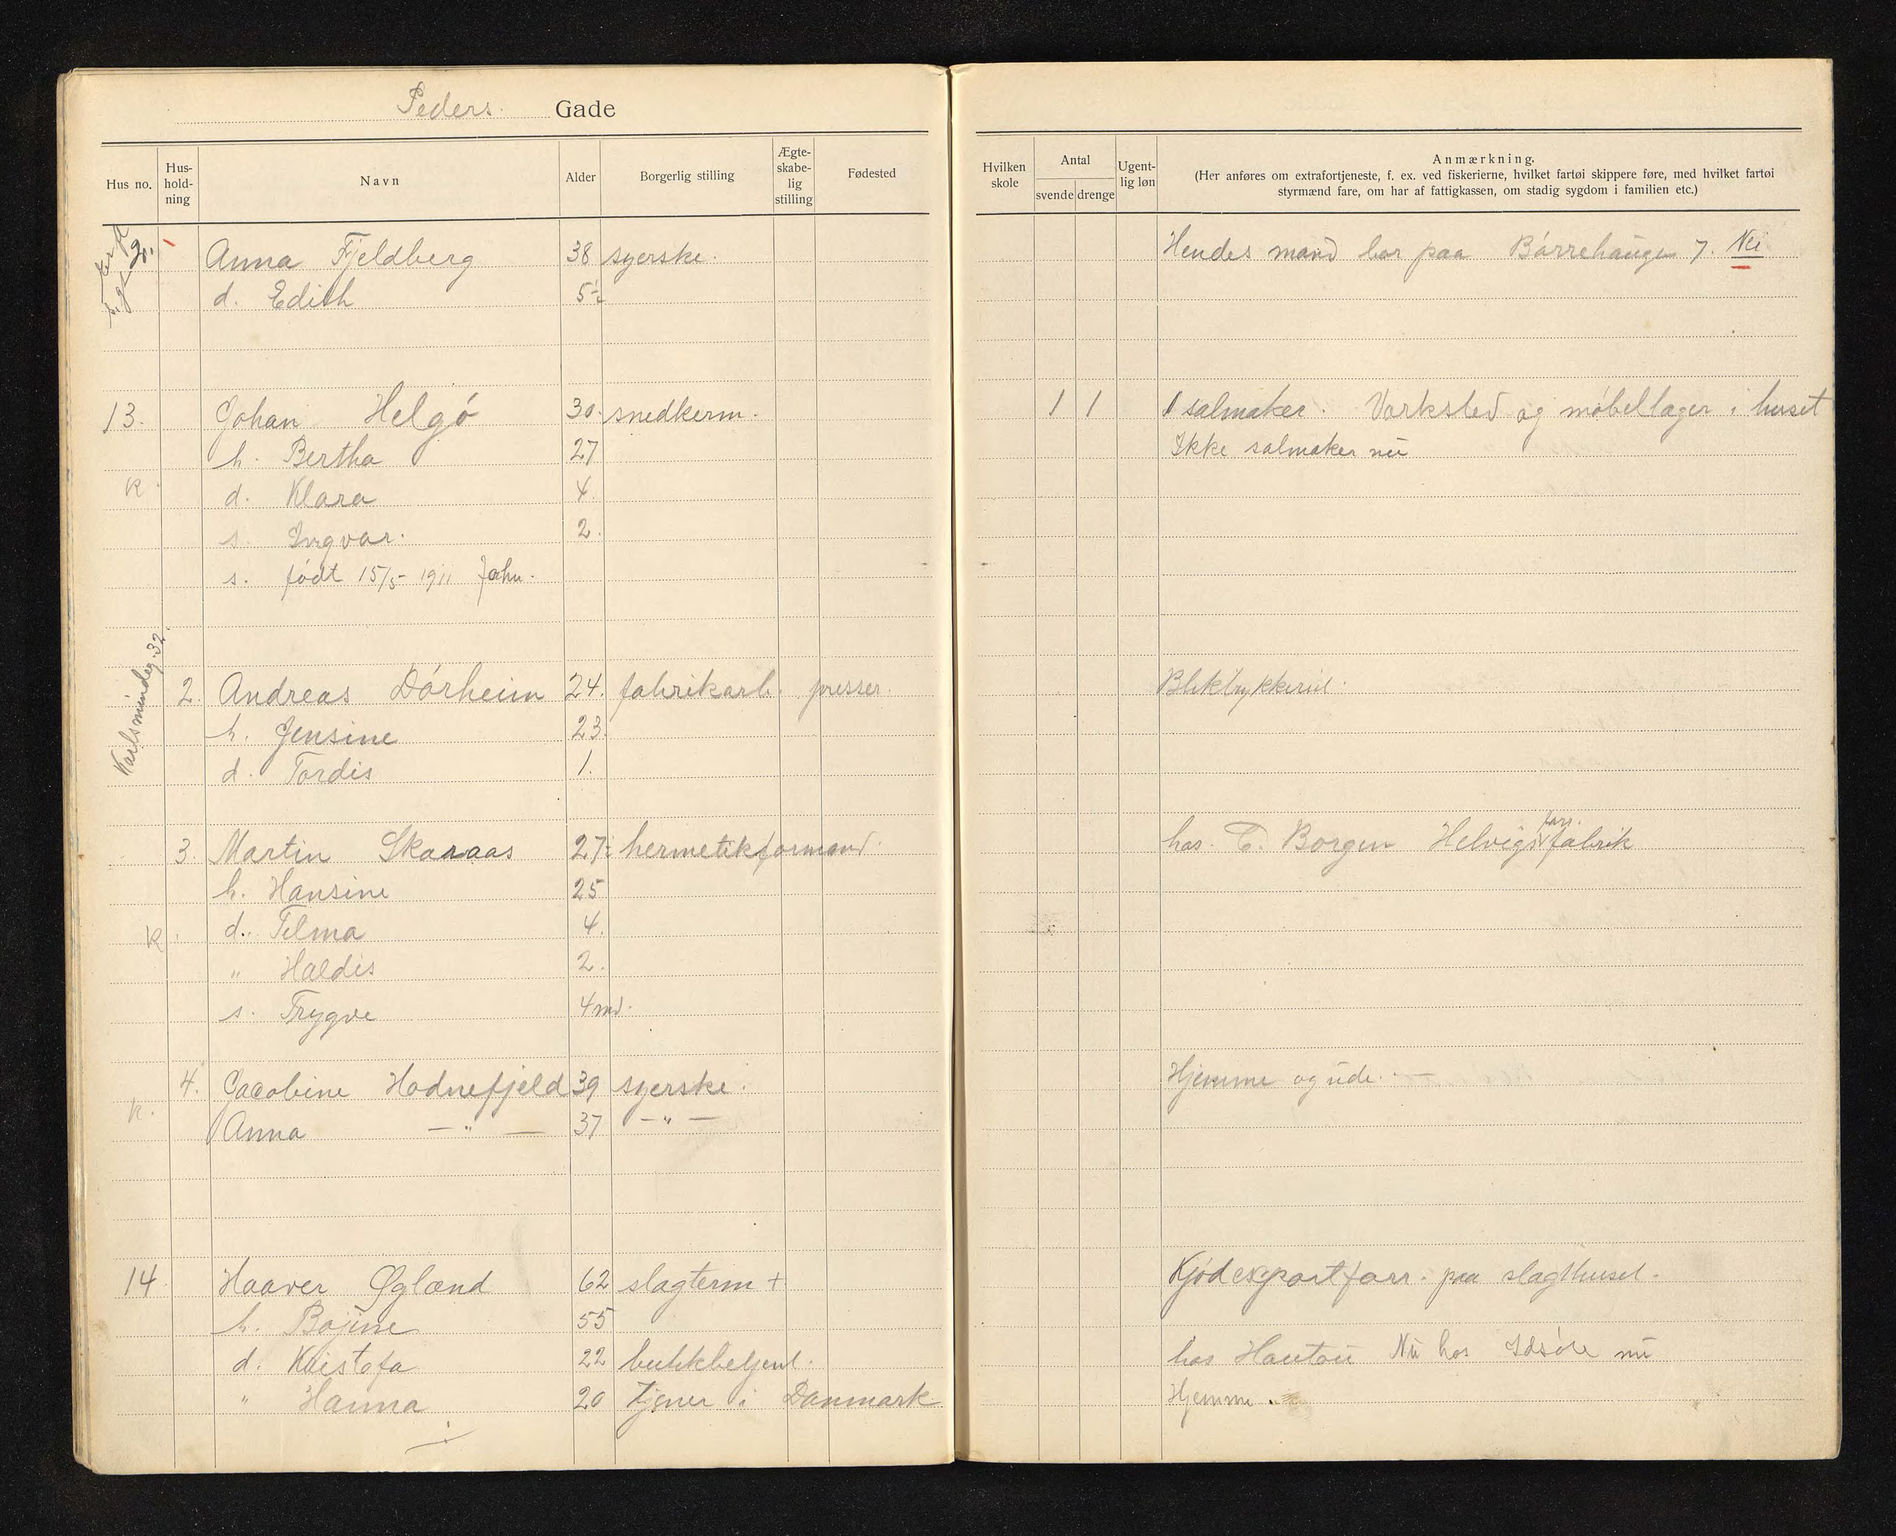 Peders. Gade
Hus no. Hus-hold-ning Navn Alder Borgerlig stilling Ægte-skabe-lig stilling Fødested Hvilken skole Antal svende drenge Ugent-lig løn Anmærkning.
(Her anføres om extrafortjeneste, f. ex. ved fiskerierne, hvilket fartøi skippere føre, med hvilket fartøi
styrmænd fare, om har af fattigkassen, om stadig sygdom i familien etc.)
2. Anna Fjeldberg 38 syerske. Hendes mand bor paa Bórrehaugen 7. Nei
d. Edith 5½
13. Johan Helgó 30. snedkerm. 1 1 1 salmaker. Verksted og móbellager i huset
h. Bertha 27 Ikke salmaker nu
k. d. Klara 4.
s. Ingvar. 2.
s. født 15/5 1911 John.
Karlsmindeg. 32.
2. Andreas Dórheim 24. fabrikarb. presser. Bliktrykkeriet.
h. Jensine 23.
d. Tordis 1.
3. Martin Skaraas 27. hermetikformand. hos C. Borgen Helvigs farr. fabrik
h. Hansine 25
k. d. Telma 4.
" Haldis 2.
s. Trygve 4 md.
4. Jacobine Hodnefjeld 39 syerske. Hjemme og ude. —
k. Anna — " — 37 — " —
14 Haaver Øglænd 62 slagterm + Kjódexportforr. paa slagthuset.
h. Bojine 55
d. Kristofa 22 butikbetjent. hos Hantou Nu hos Idsóe nu
" Hanna 20 tjener i Danmark Hjemme.